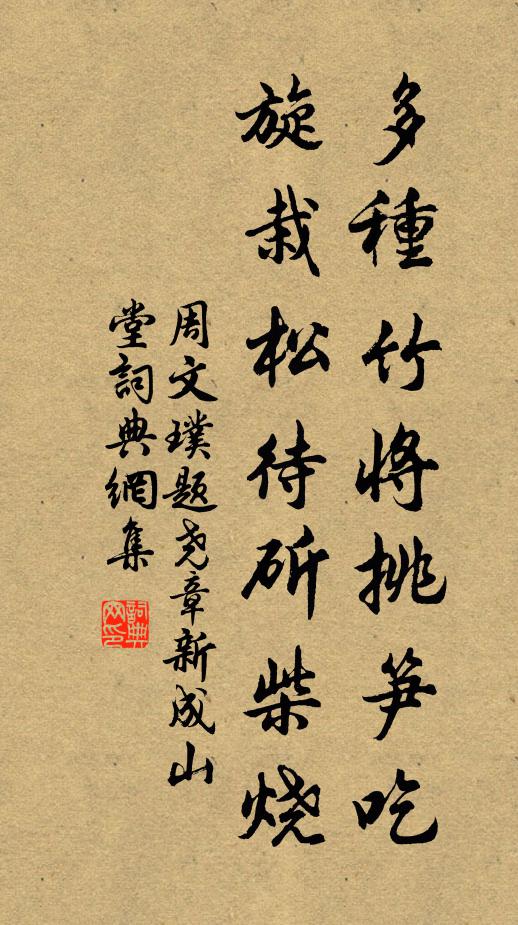 多種竹將挑笋吃
旋栽松待斫柴烧
周文璞題尧章新成山
堂詞典網集
詞典
网印